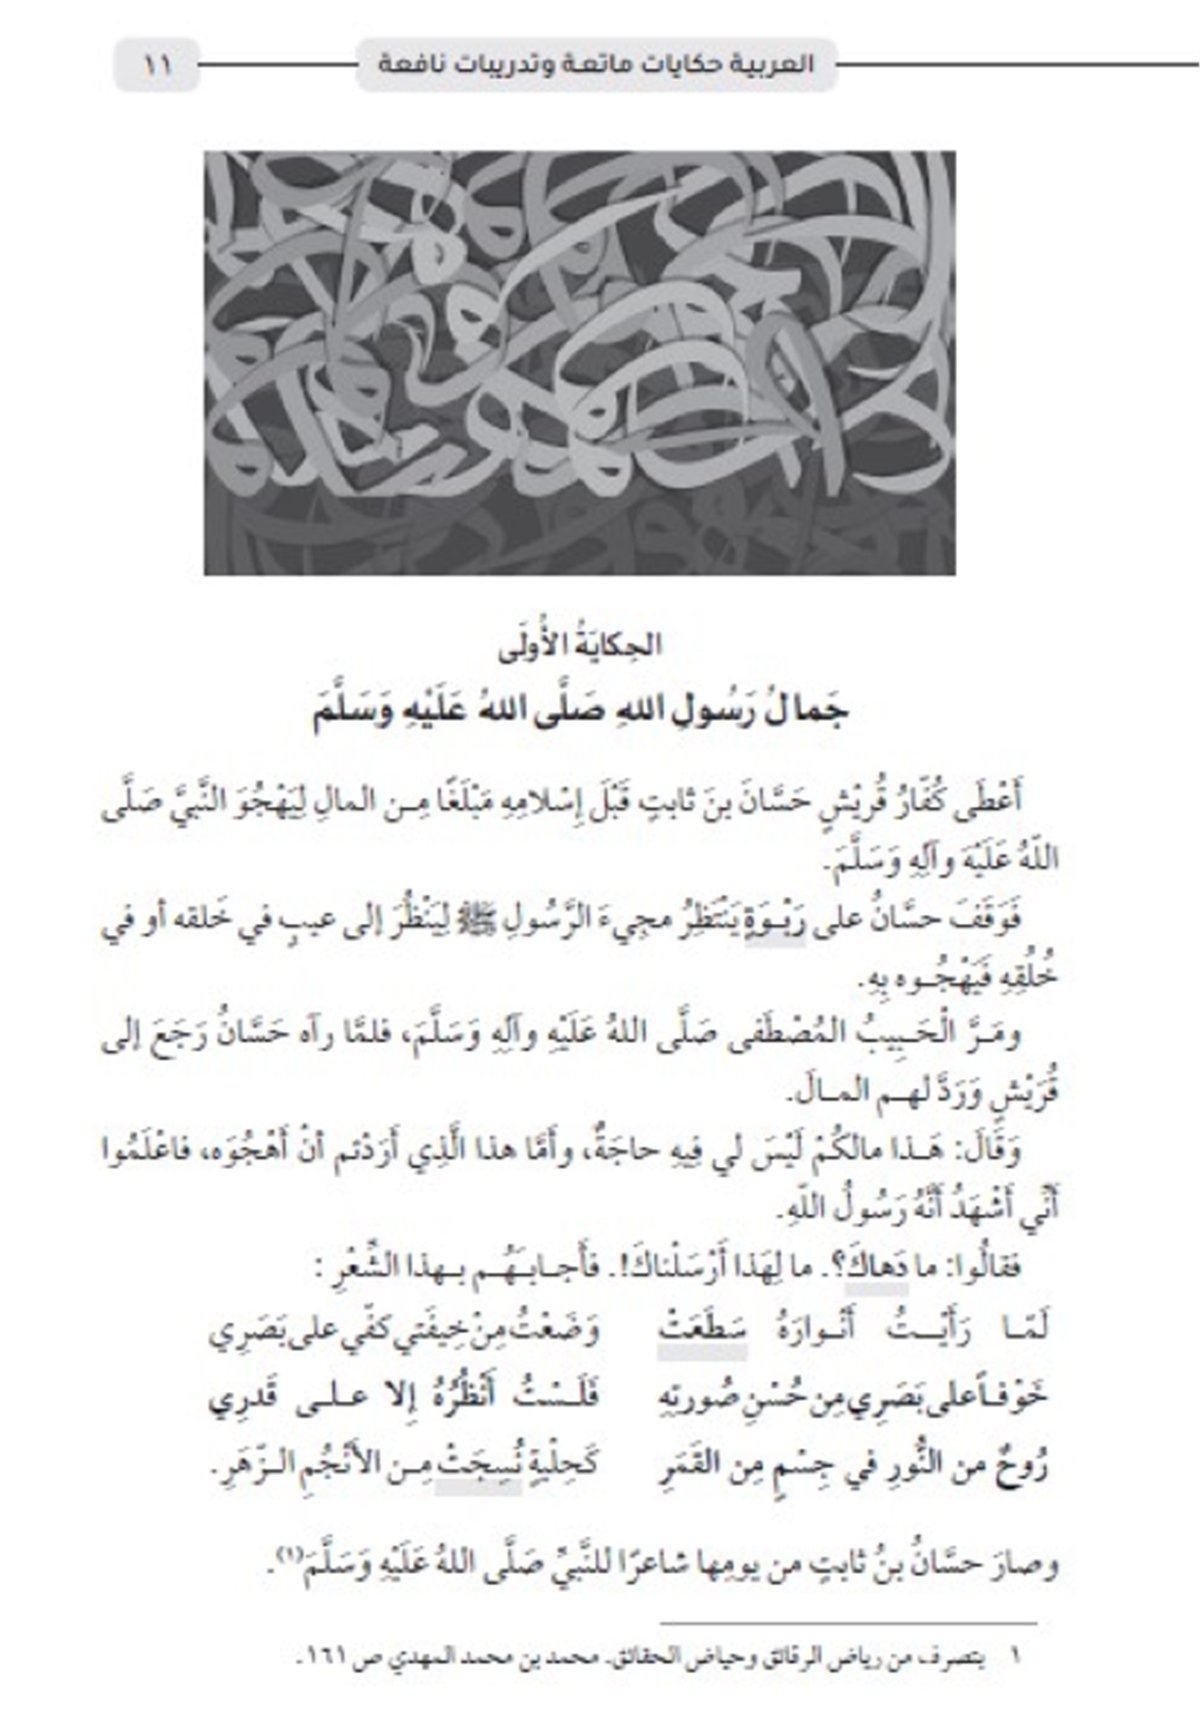 العربية حكايات ماتعة وتدريبات نافعة
١١
الحِكايَةُ الأُولَى
جَمالُ رَسُولِ اللهِ صَلَّى اللهُ عَلَيْهِ وَسَلَّمَ
أَعْطَى كُفّارُ قُريْشٍ حَسَّانَ بنَ ثابتٍ قَبْلَ إِسْلامِهِ مَبْلَغًا مِـن المالِ لِيَهْجُوَ النَّبيَّ صَلَّى
اللّهُ عَلَيْهَ وآلِهِ وَسَلَّمَ.
فَوَقَفَ حسَّانُ على رَبْـوَةٍ يَنْتَظِرُ مجِيءَ الرَّسُولِ ﷺ لِيَنْظُرَ إلى عيبٍ في خَلقه أو في
خُلُقِهِ فَيَهْجُـوه بِهِ.
ومَـرَّ الْحَـبِيبُ المُصْطَفى صَلَّى اللهُ عَلَيْهِ وآلِهِ وَسَلَّمَ، فلمَّا رآه حَسَّانُ رَجَعَ إلى
قُرَيْشٍ وَرَدَّ لهـم المـالَ.
وَقَالَ: هَـذا مالكُمْ لَيْسَ لي فِيهِ حاجَةٌ، وأَمَّا هذا الَّذِي أَرَدْتم أنْ أَهْجُوَه، فاعْلَمُوا
أَنِّي أَشْهَدُ أَنَّهُ رَسُولُ اللّهِ.
فقالُوا: ما دَهاكَ؟. ما لِهَذا أَرْسَلْناكَ!. فَأَجـابَـهُـم بـهذا الشِّعْرِ :
لَمّـا رَأَيْــتُ أَنْـوارَهُ سَطَعَتْ وَضَعْتُ مِنْ خِيفَتي كفّي على بَصَرِي
خَوْفـاً على بَصَرِي مِن حُسْنِ صُورتِهِ فَلَـسْتُ أَنْظُرُهُ إِلا عـلـى قَدرِي
رُوحٌ من النُّورِ في جِسْمٍ مِن القَمَرِ كَحِلْيةٍ نُسِجَتْ مِـن الأَنْجُمِ الـزّهَرِ.
وصارَ حسَّانُ بنُ ثابتٍ من يومِها شاعرًا للنَّبيِّ صَلَّى اللهُ عَلَيْهِ وَسَلَّمَ(١).
١ بتصرف من رياض الرقائق وحياض الحقائق. محمد بن محمد المهدي ص ١٦١.